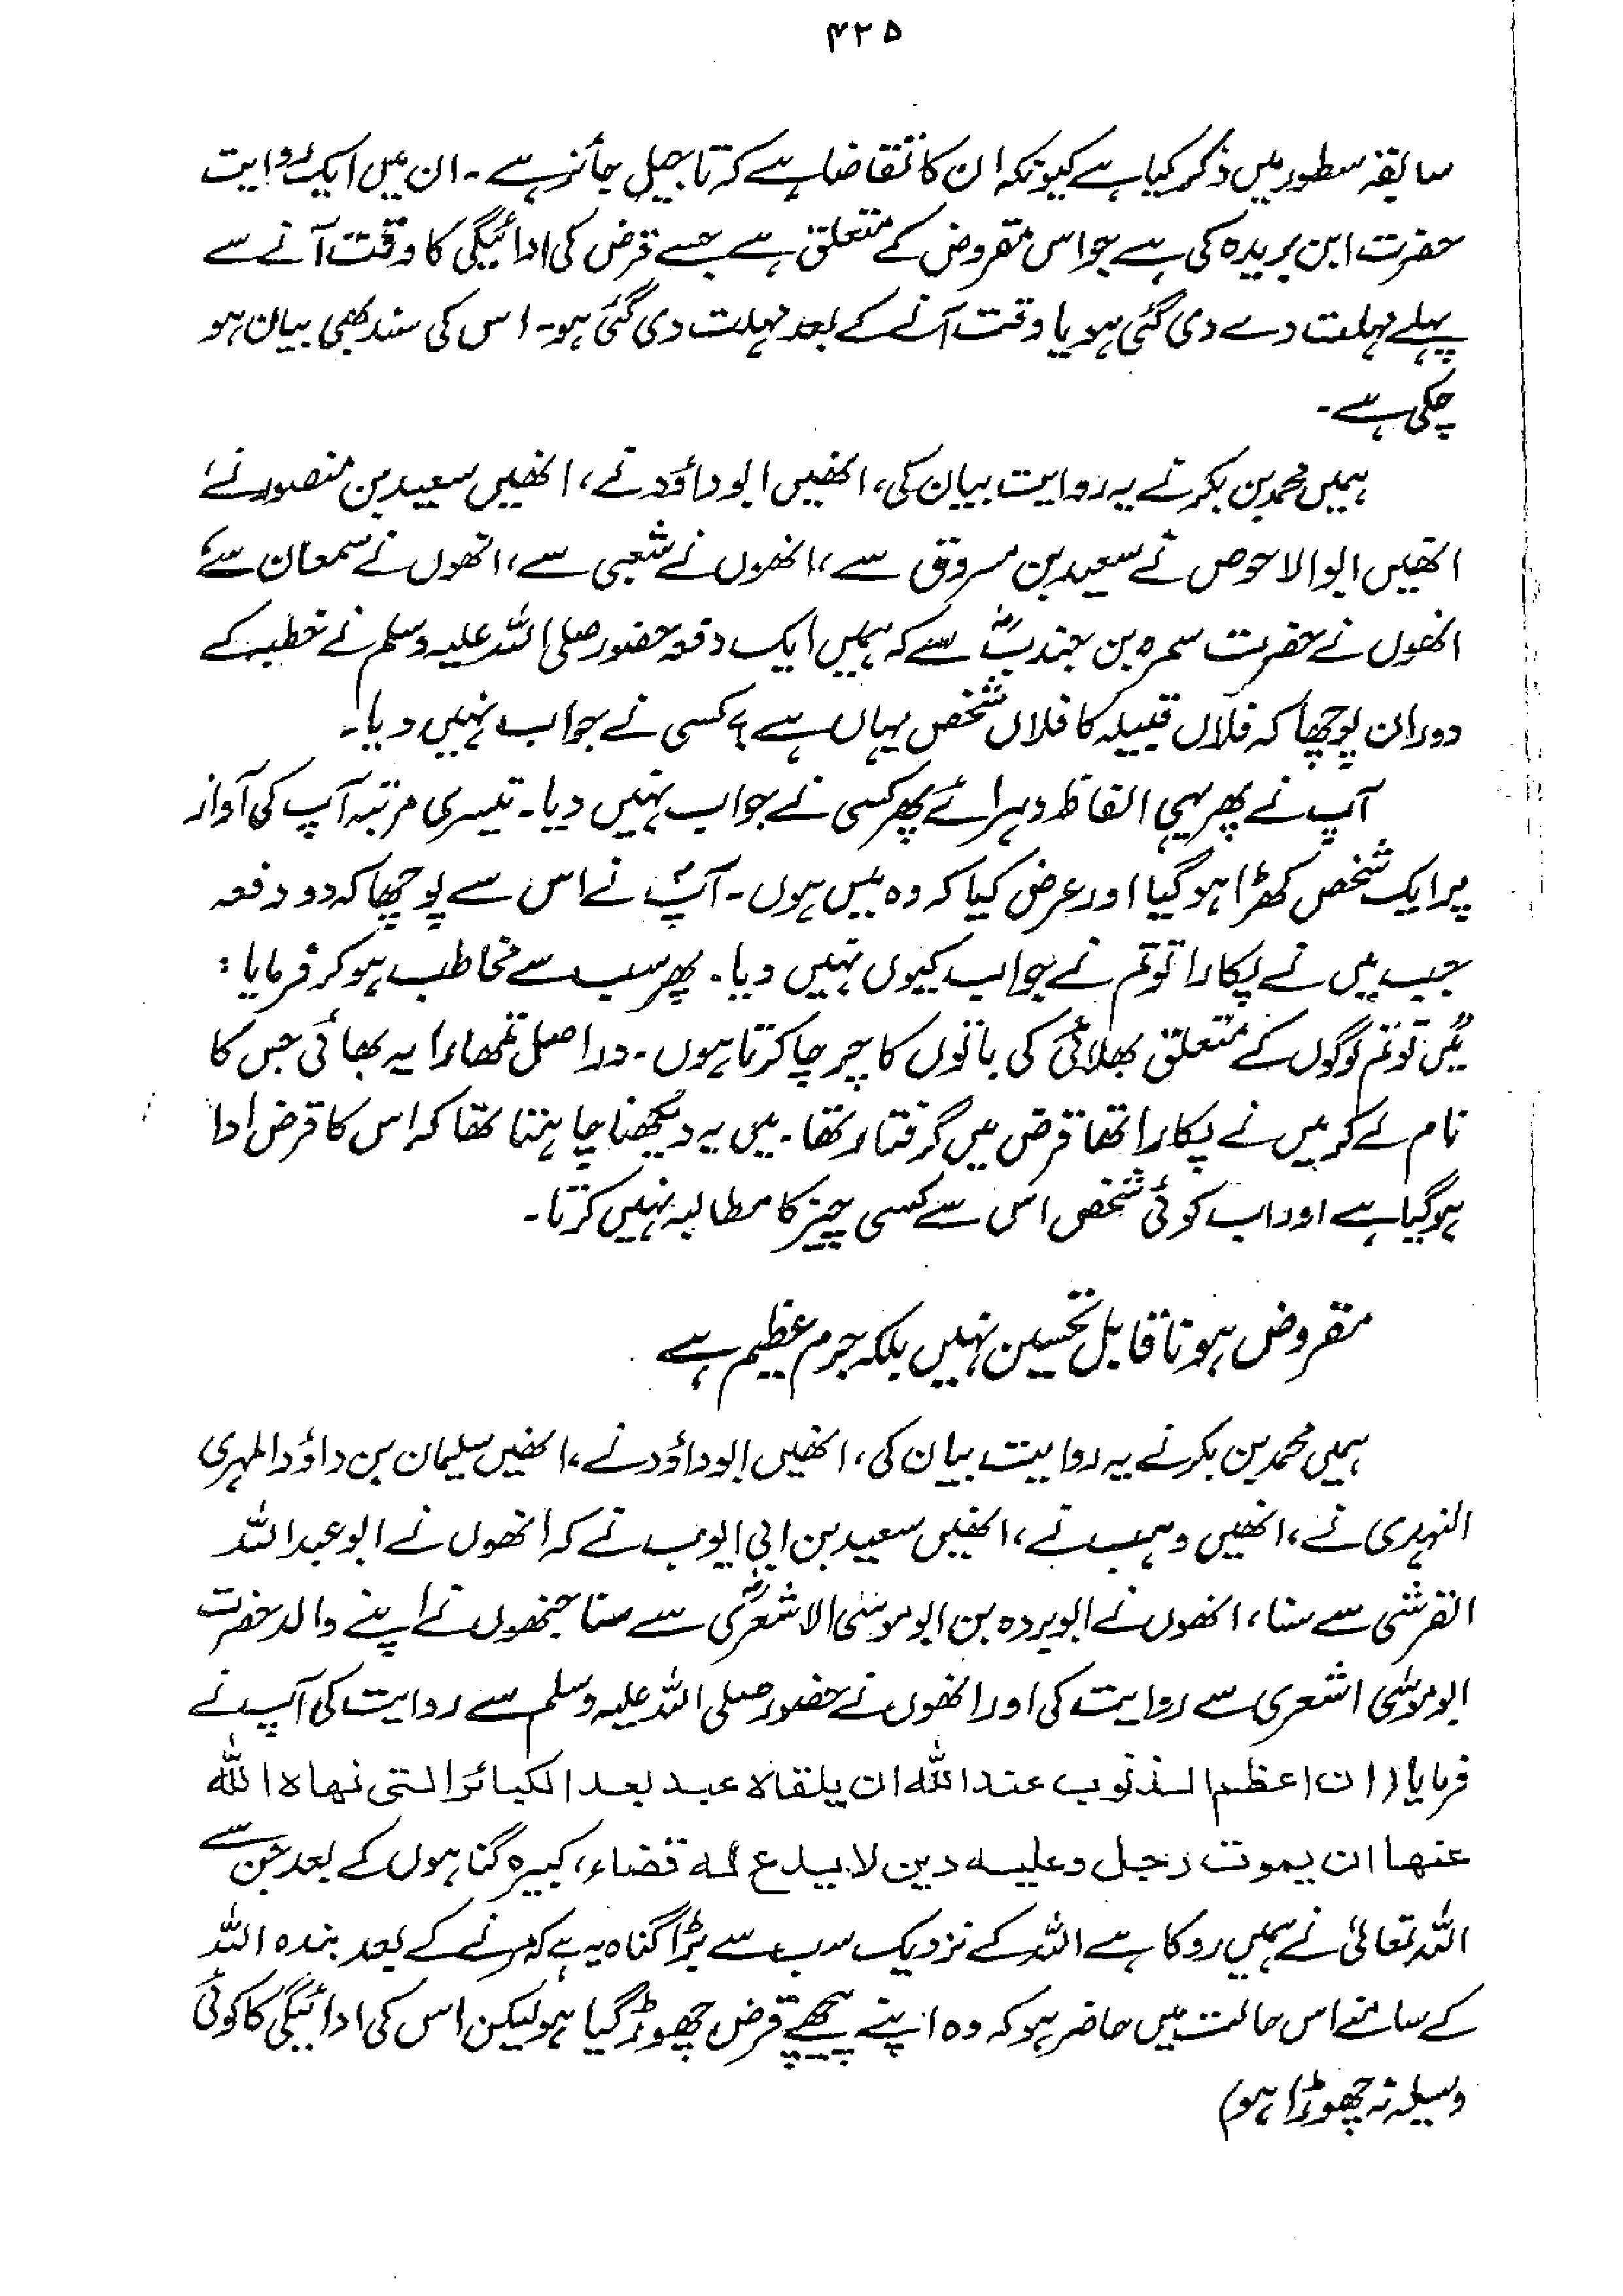 ۴۲۵
سابقہ سطور میں ذکر کیا ہے کیونکہ ان کا تقاضا ہے کہ تاجیل جائز ہے ۔ ان میں ایک روایت
حضرت ابن بریدہ کی ہے جو اس مقروض کے متعلق ہے جسے قرض کی ادائیگی کا وقت آنے سے
پہلے مہلت دے دی گئی ہو یا وقت آنے کے بعد مہلت دی گئی ہو۔ اس کی سند بھی بیان ہو
چکی ہے ۔
ہمیں محمد بن بکر نے یہ روایت بیان کی، انھیں ابو داؤد نے، انھیں سعید بن منصور نے،
انھیں ابو الاحوص نے سعید بن مسروق سے، انھوں نے شعبی سے، انھوں نے سمعان سے،
انھوں نے حضرت سمرہ بن جندبؓ سے کہ ہمیں ایک دفعہ حضور صلی اللہ علیہ وسلم نے خطبہ کے
دوران پوچھا کہ فلاں قبیلہ کا فلاں شخص یہاں ہے ؟ کسی نے جواب نہیں دیا۔
آپ نے پھر یہی الفاظ دہرائے پھر کسی نے جواب نہیں دیا۔ تیسری مرتبہ آپ کی آواز
پر ایک شخص کھڑا ہو گیا اور عرض کیا کہ وہ میں ہوں ۔ آپؐ نے اس سے پوچھا کہ دو دفعہ
جب میں نے پکارا تو تم نے جواب کیوں نہیں دیا۔ پھر سب سے مخاطب ہو کر فرمایا :
"میں تو تم لوگوں کے متعلق بھلائی کی باتوں کا چرچا کرتا ہوں ۔ دراصل تمھارا یہ بھائی جس کا
نام لے کر میں نے پکارا تھا قرض میں گرفتار تھا ۔ میں یہ دیکھنا چاہتا تھا کہ اس کا قرض ادا
ہو گیا ہے اور اب کوئی شخص اس سے کسی چیز کا مطالبہ نہیں کرتا ۔
مقروض ہونا قابل تحسین نہیں بلکہ جرم عظیم ہے
ہمیں محمد بن بکر نے یہ روایت بیان کی، انھیں ابو داؤد نے، انھیں سلیمان بن داؤد المہری
النہدی نے، انھیں وہب نے، انھیں سعید بن ابی ایوب نے کہ انھوں نے ابو عبد اللہ
القرشی سے سنا، انھوں نے ابو بردہ بن ابو موسٰی الاشعریؓ سے سنا جنھوں نے اپنے والد حضرت
ابو موسٰی اشعری سے روایت کی اور انھوں نے حضور صلی اللہ علیہ وسلم سے روایت کی آپ نے
فرمایا (ان اعظم الذنوب عند اللہ ان یلقاہ عبد بعد الکبائر التی نہاہ اللہ
عنہا ان یموت رجل وعلیہ دین لا یدع لہ قضاء، کبیرہ گناہوں کے بعد جن سے
اللہ تعالیٰ نے ہمیں روکا ہے اللہ کے نزدیک سب سے بڑا گناہ یہ ہے کہ مرنے کے بعد بندہ اللہ
کے سامنے اس حالت میں حاضر ہو کہ وہ اپنے پیچھے قرض چھوڑ گیا ہو لیکن اس کی ادائیگی کا کوئی
وسیلہ نہ چھوڑا ہو)